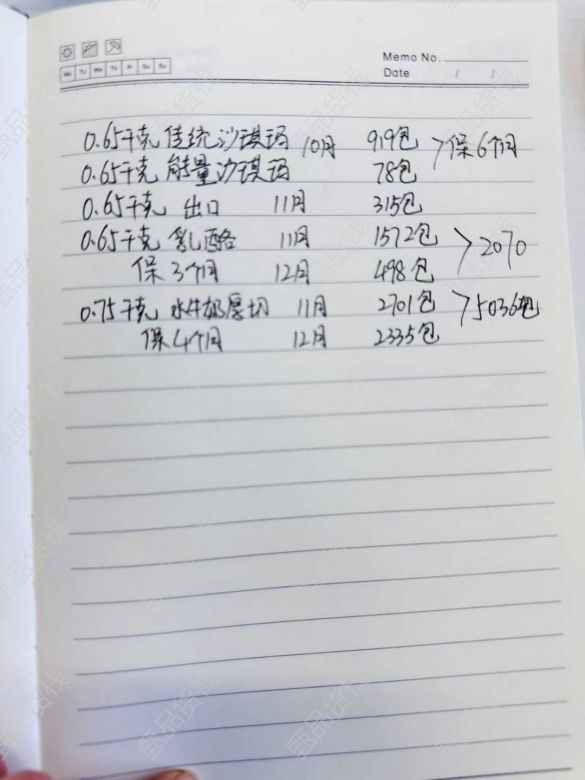 Memo No.
Mo Tu We Th Fr Sa Su
Date / /
0.65千克 传统沙琪玛 10月 919包 >保6个月
0.65千克 能量沙琪玛 78包
0.65千克 出口 11月 315包
0.65千克 乳酪 11月 1572包 >2070
保3个月 12月 498包
0.75千克 水牛奶厚切 11月 2701包 >5036包
保4个月 12月 2335包
甄品货栈